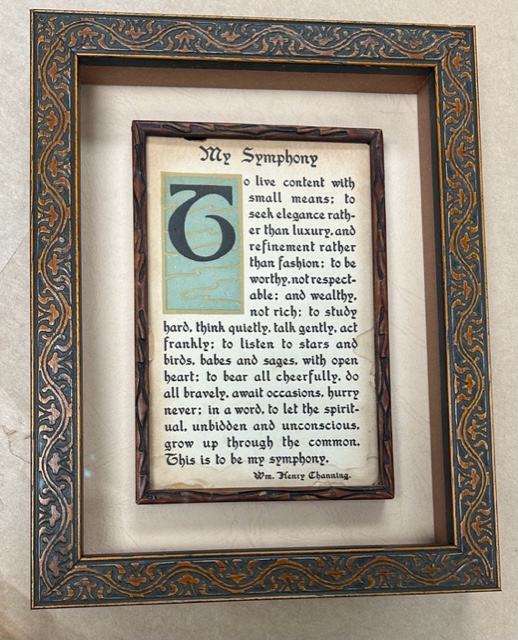 My Symphony
To live content with
small means; to
seek elegance rath-
er than luxury, and
refinement rather
than fashion; to be
worthy, not respect-
able; and wealthy,
not rich; to study
hard, think quietly, talk gently, act
frankly; to listen to stars and
birds, babes and sages, with open
heart; to bear all cheerfully, do
all bravely, await occasions, hurry
never; in a word, to let the spirit-
ual, unbidden and unconscious,
grow up through the common.
This is to be my symphony.
Wm. Henry Channing.